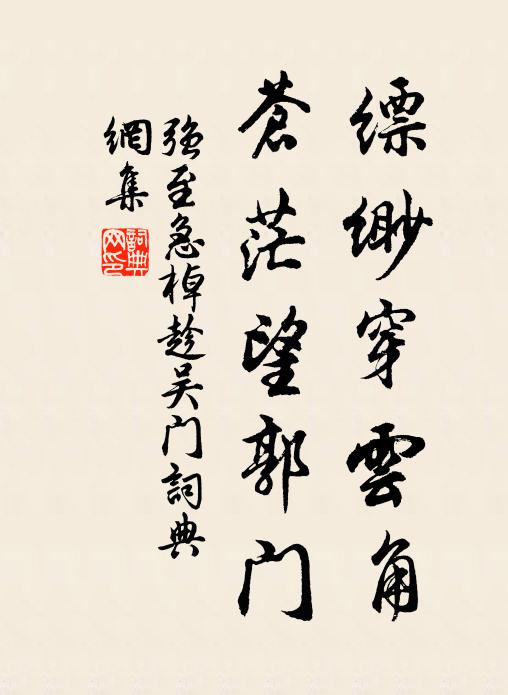 縹緲穿雲角
蒼茫望郭門
强至急棹趁吴门詞典
網集
詞典
网印